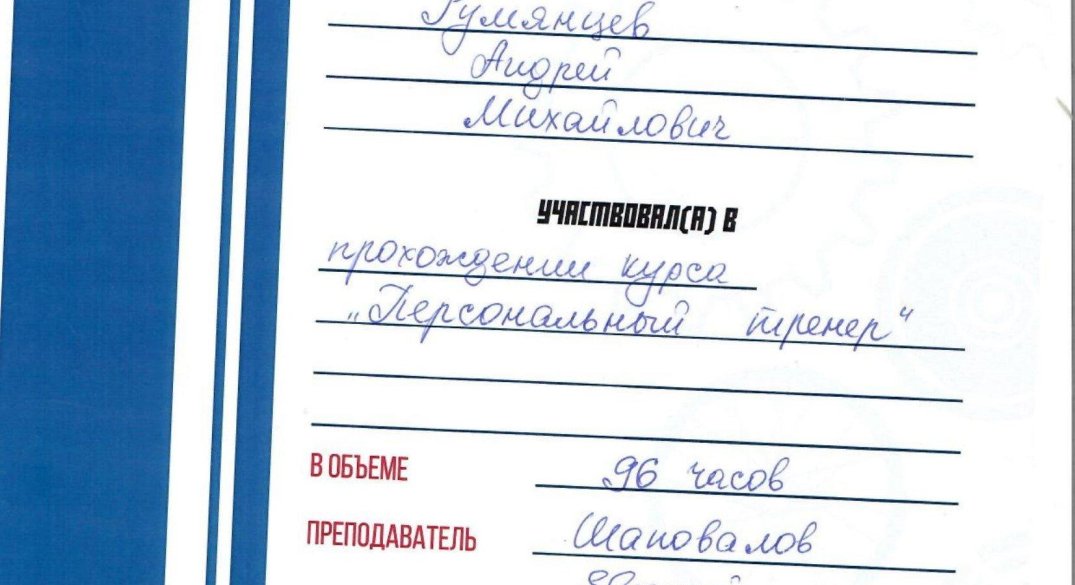 Румянцев
Андрей
Михайлович
УЧАСТВОВАЛ(А) В
прохождении курса
„Персональный тренер“
В ОБЪЕМЕ 96 часов
ПРЕПОДАВАТЕЛЬ Шаповалов